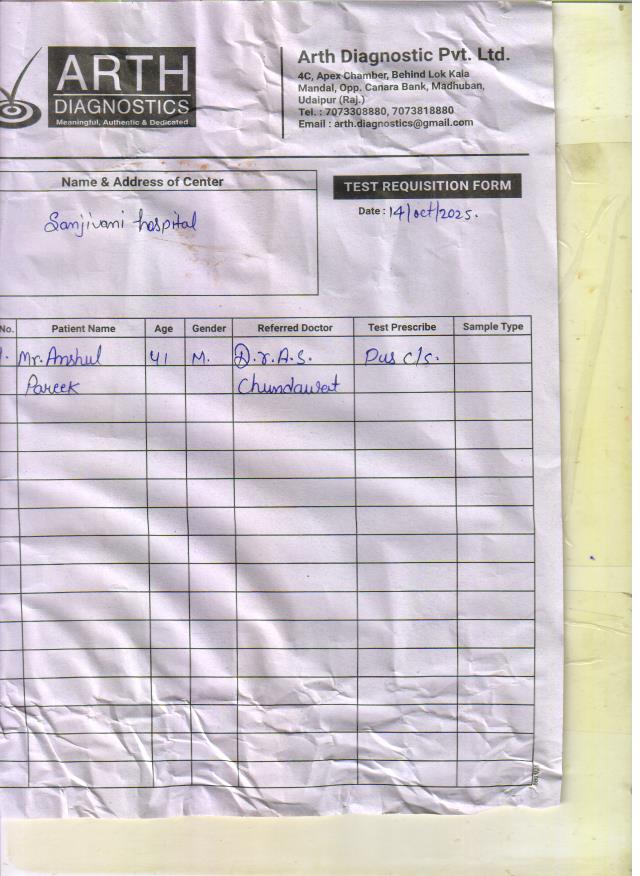 ARTH
DIAGNOSTICS
Meaningful, Authentic & Dedicated
Arth Diagnostic Pvt. Ltd.
4C, Apex Chamber, Behind Lok Kala
Mandal, Opp. Canara Bank, Madhuban,
Udaipur (Raj.)
Tel. : 7073308880, 7073818880
Email : arth.diagnostics@gmail.com
Name & Address of Center
TEST REQUISITION FORM
Date : 14/oct/2025.
Sanjivani hospital
No. Patient Name Age Gender Referred Doctor Test Prescribe Sample Type
1. Mr. Anshul 41 M. D.r.A.S. Pus c/s.
Pareek Chundawat